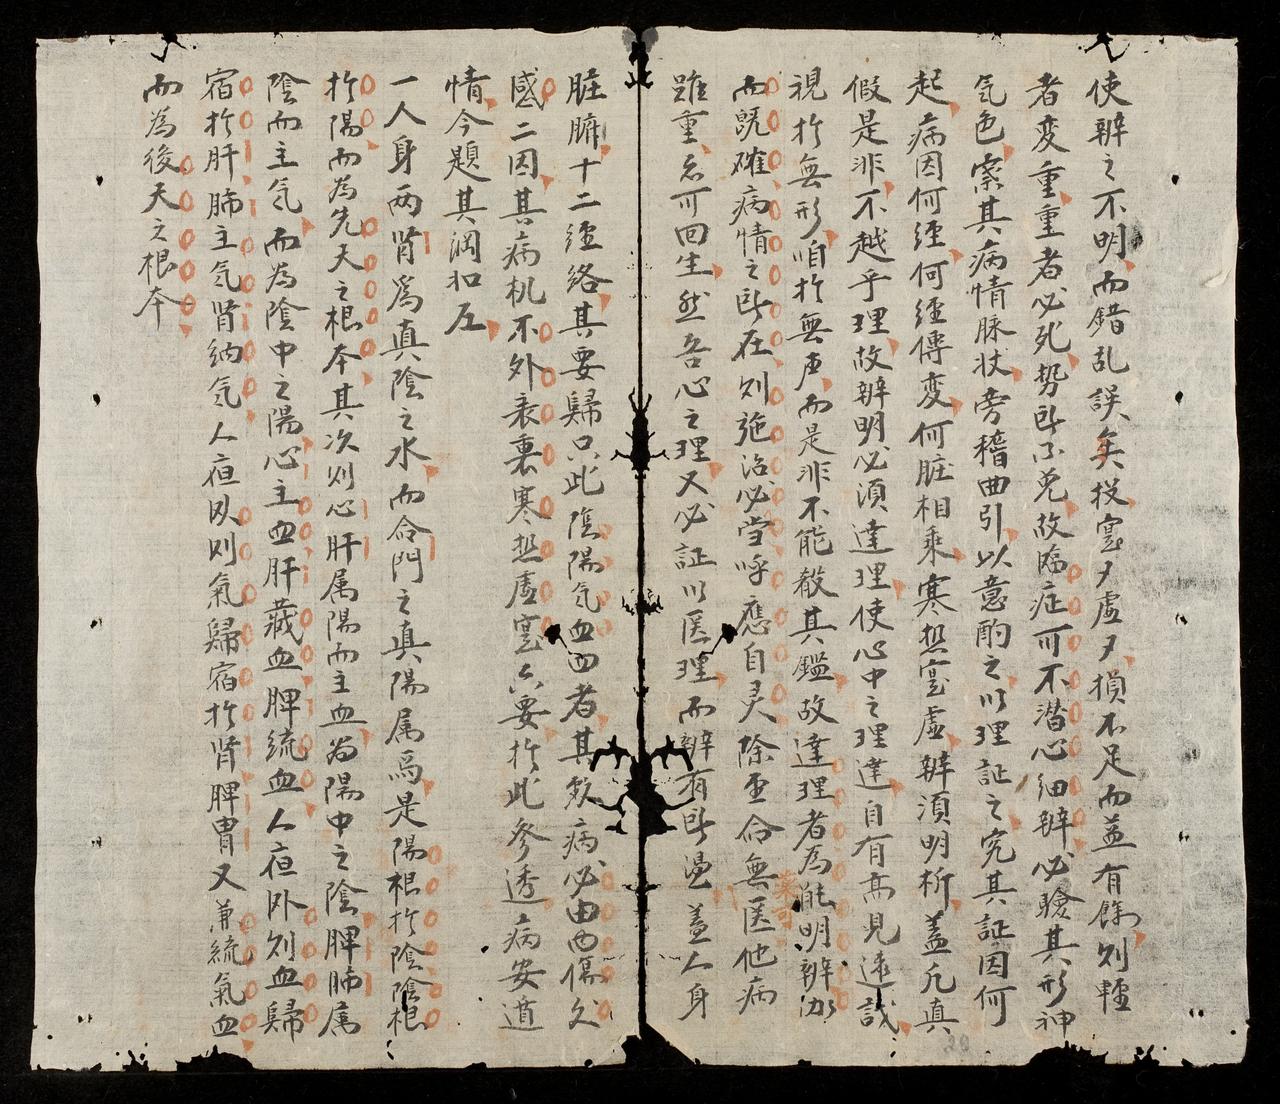 使辨之不明而錯乱誤矣投寔夕虛夕損不足而益有餘则輕
者变重重者必死势所不免故臨症可不潛心细辨必驗其形神
気色察其病情脉状旁稽曲引以意酌之以理証之究其証因何
起病因何經何經傳変何脏相乘寒热寔虛辨須明析蓋凡真
假是非不越乎理故辨明必須達理使心中之理達自有高見遠識
視於無形聞於無声而是非不能殽其鑑故達理者為能明辨
而既確病情之所在则施治必當呼應自灵除至命無医他病
虽重忽可回生然吾心之理又必証以医理而辨有所蓋人身
脏腑十二經絡其要歸只此陰陽気血四者其致病必由内傷外
感二因其病机不外表裏寒热虛寔六要於此参透病安遁
情今題其綱扣左
一人身两肾為真陰之水而命門之真陽属焉是陽根於陰陰根
於陽而為先天之根本其次则心肝属陽而主血為陽中之陰脾肺属
陰而主気而為陰中之陽心主血肝藏血脾統血人夜卧则血歸
宿於肝肺主気肾納気人夜卧则氣歸宿於肾脾胃又兼統氣血
而為後天之根本